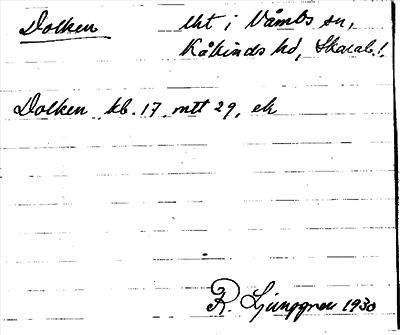 Dolken lht i Våmbs sn,
Kåkinds hd, Skarab. l.
Dolken kb. 17, mtt 29, ek
R. Ljunggren 1930